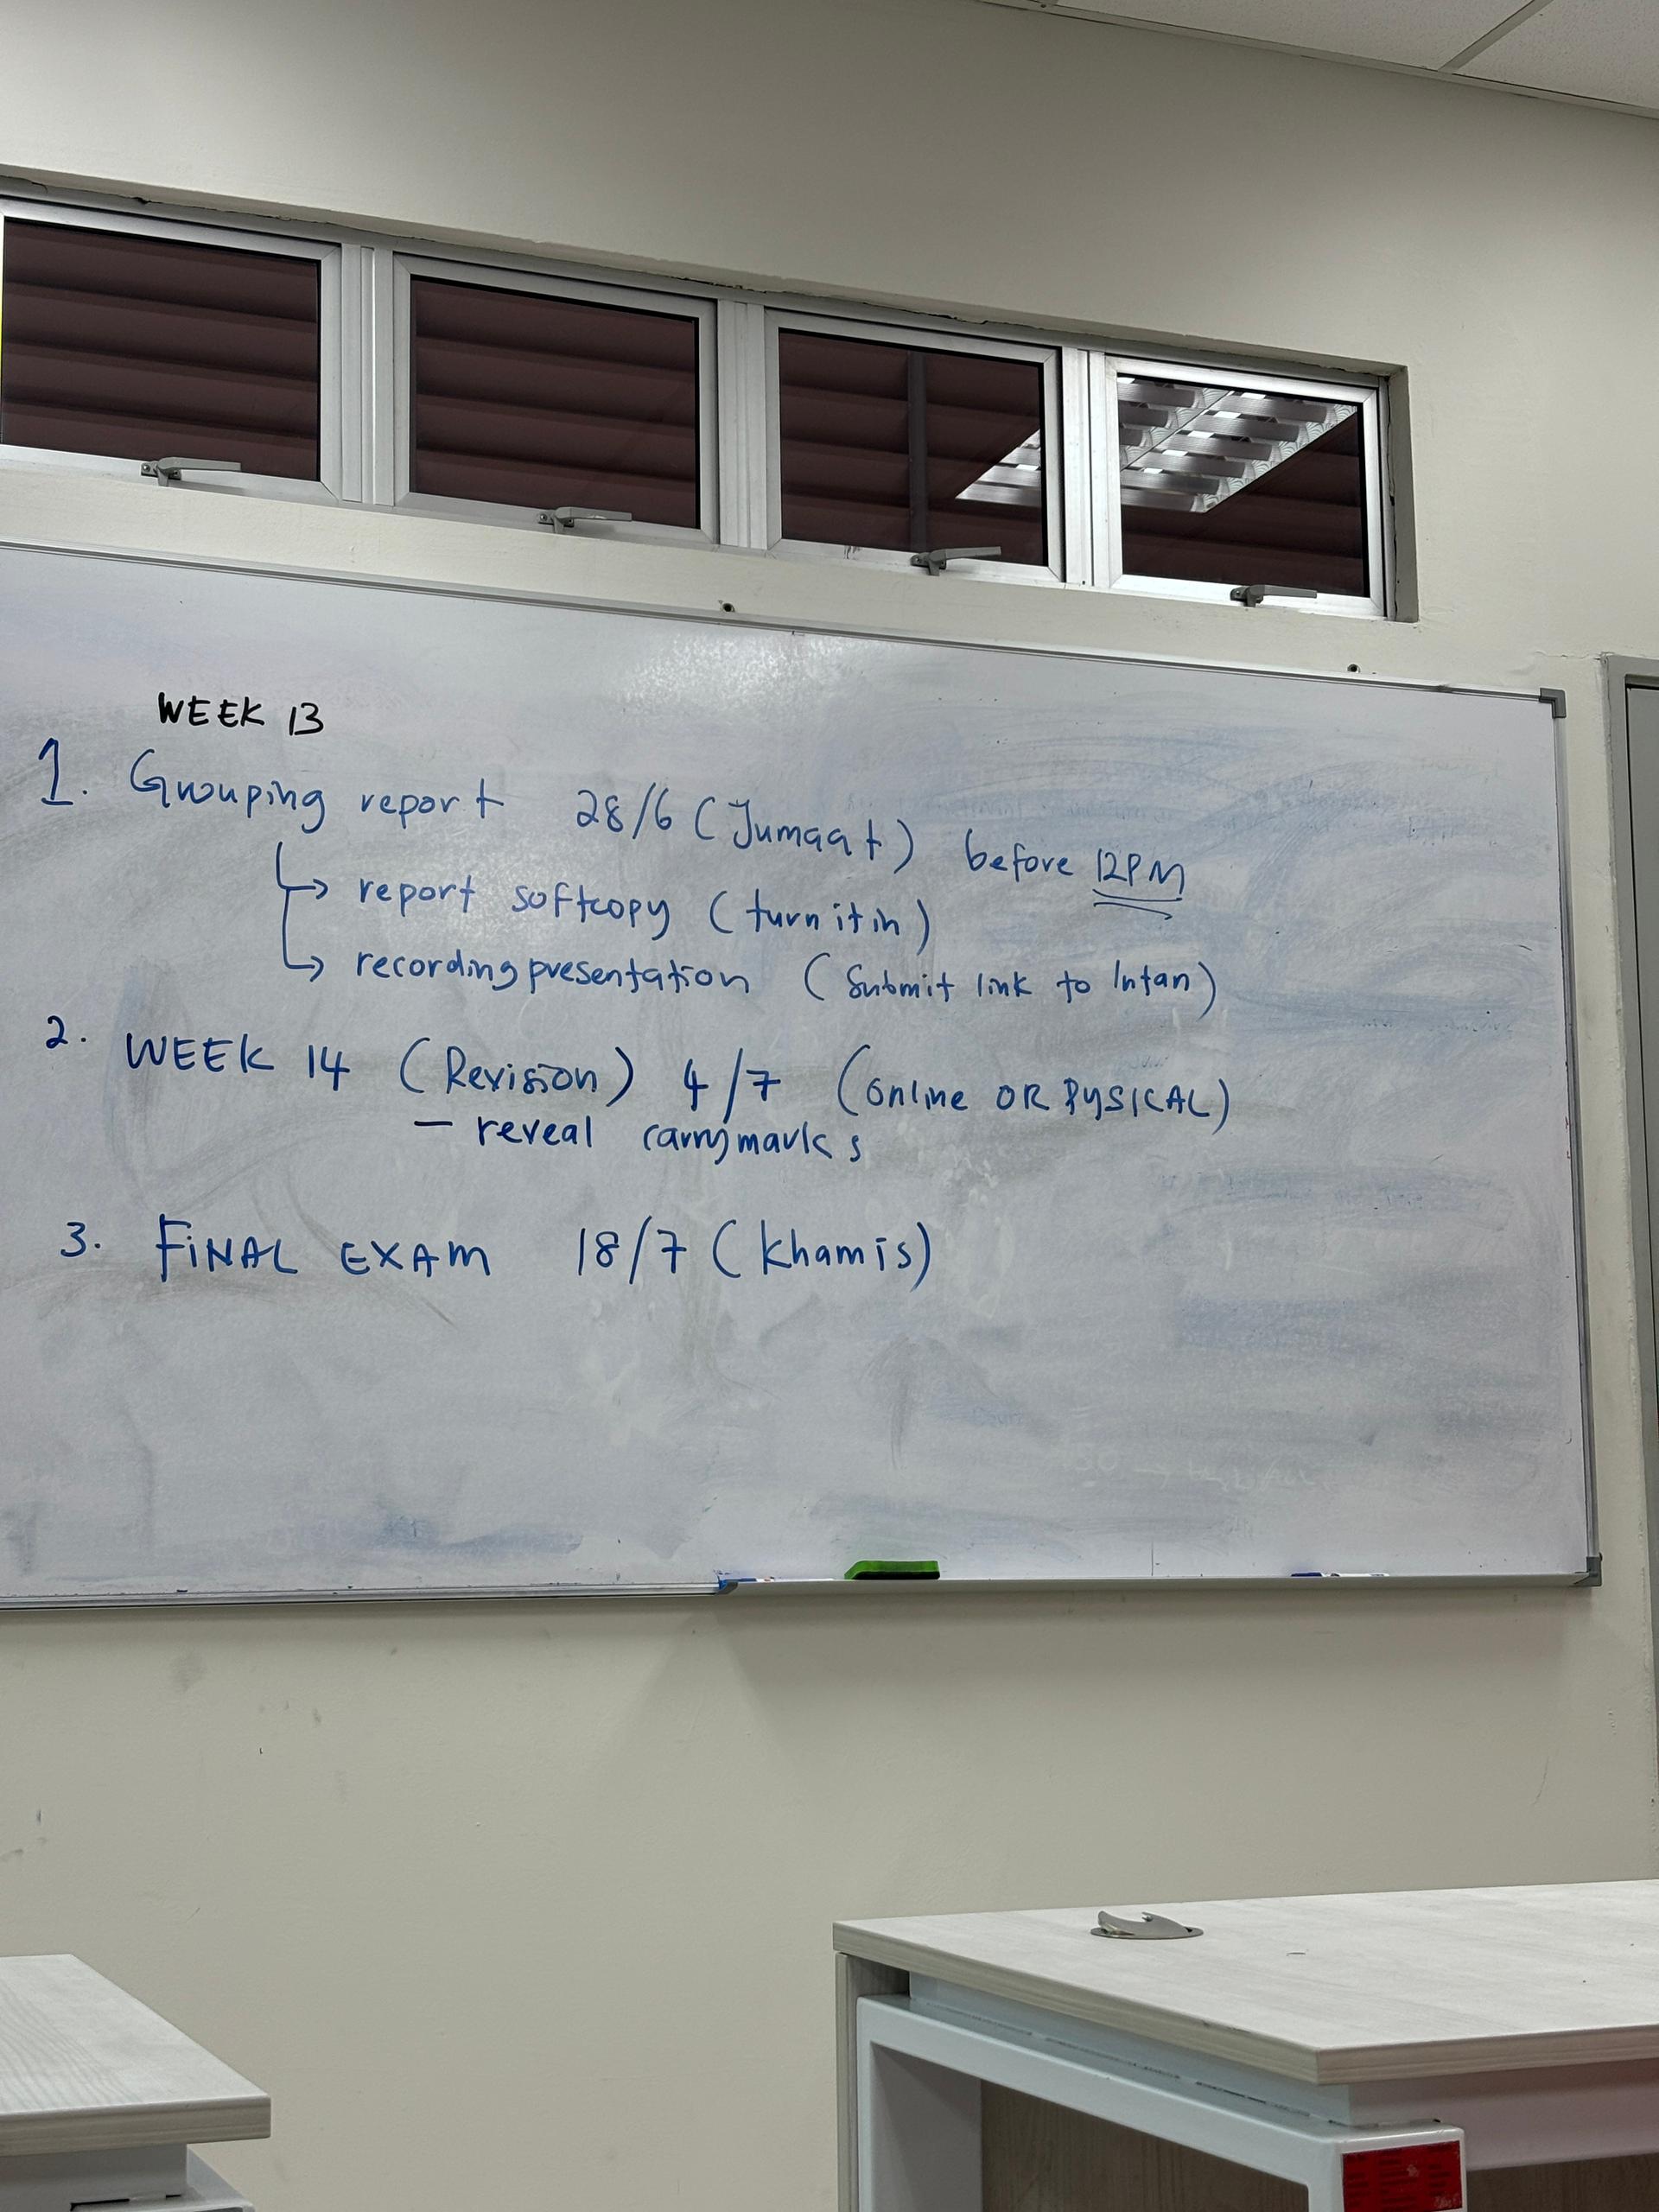 WEEK 13
1. Grouping report 28/6 (Jumaat) before 12PM
↳ report softcopy (turnitin)
↳ recording presentation (Submit link to Intan)
2. WEEK 14 (Revision) 4/7 (Online OR PYSICAL)
- reveal carrymarks
3. FiNAL EXAM 18/7 (Khamis)